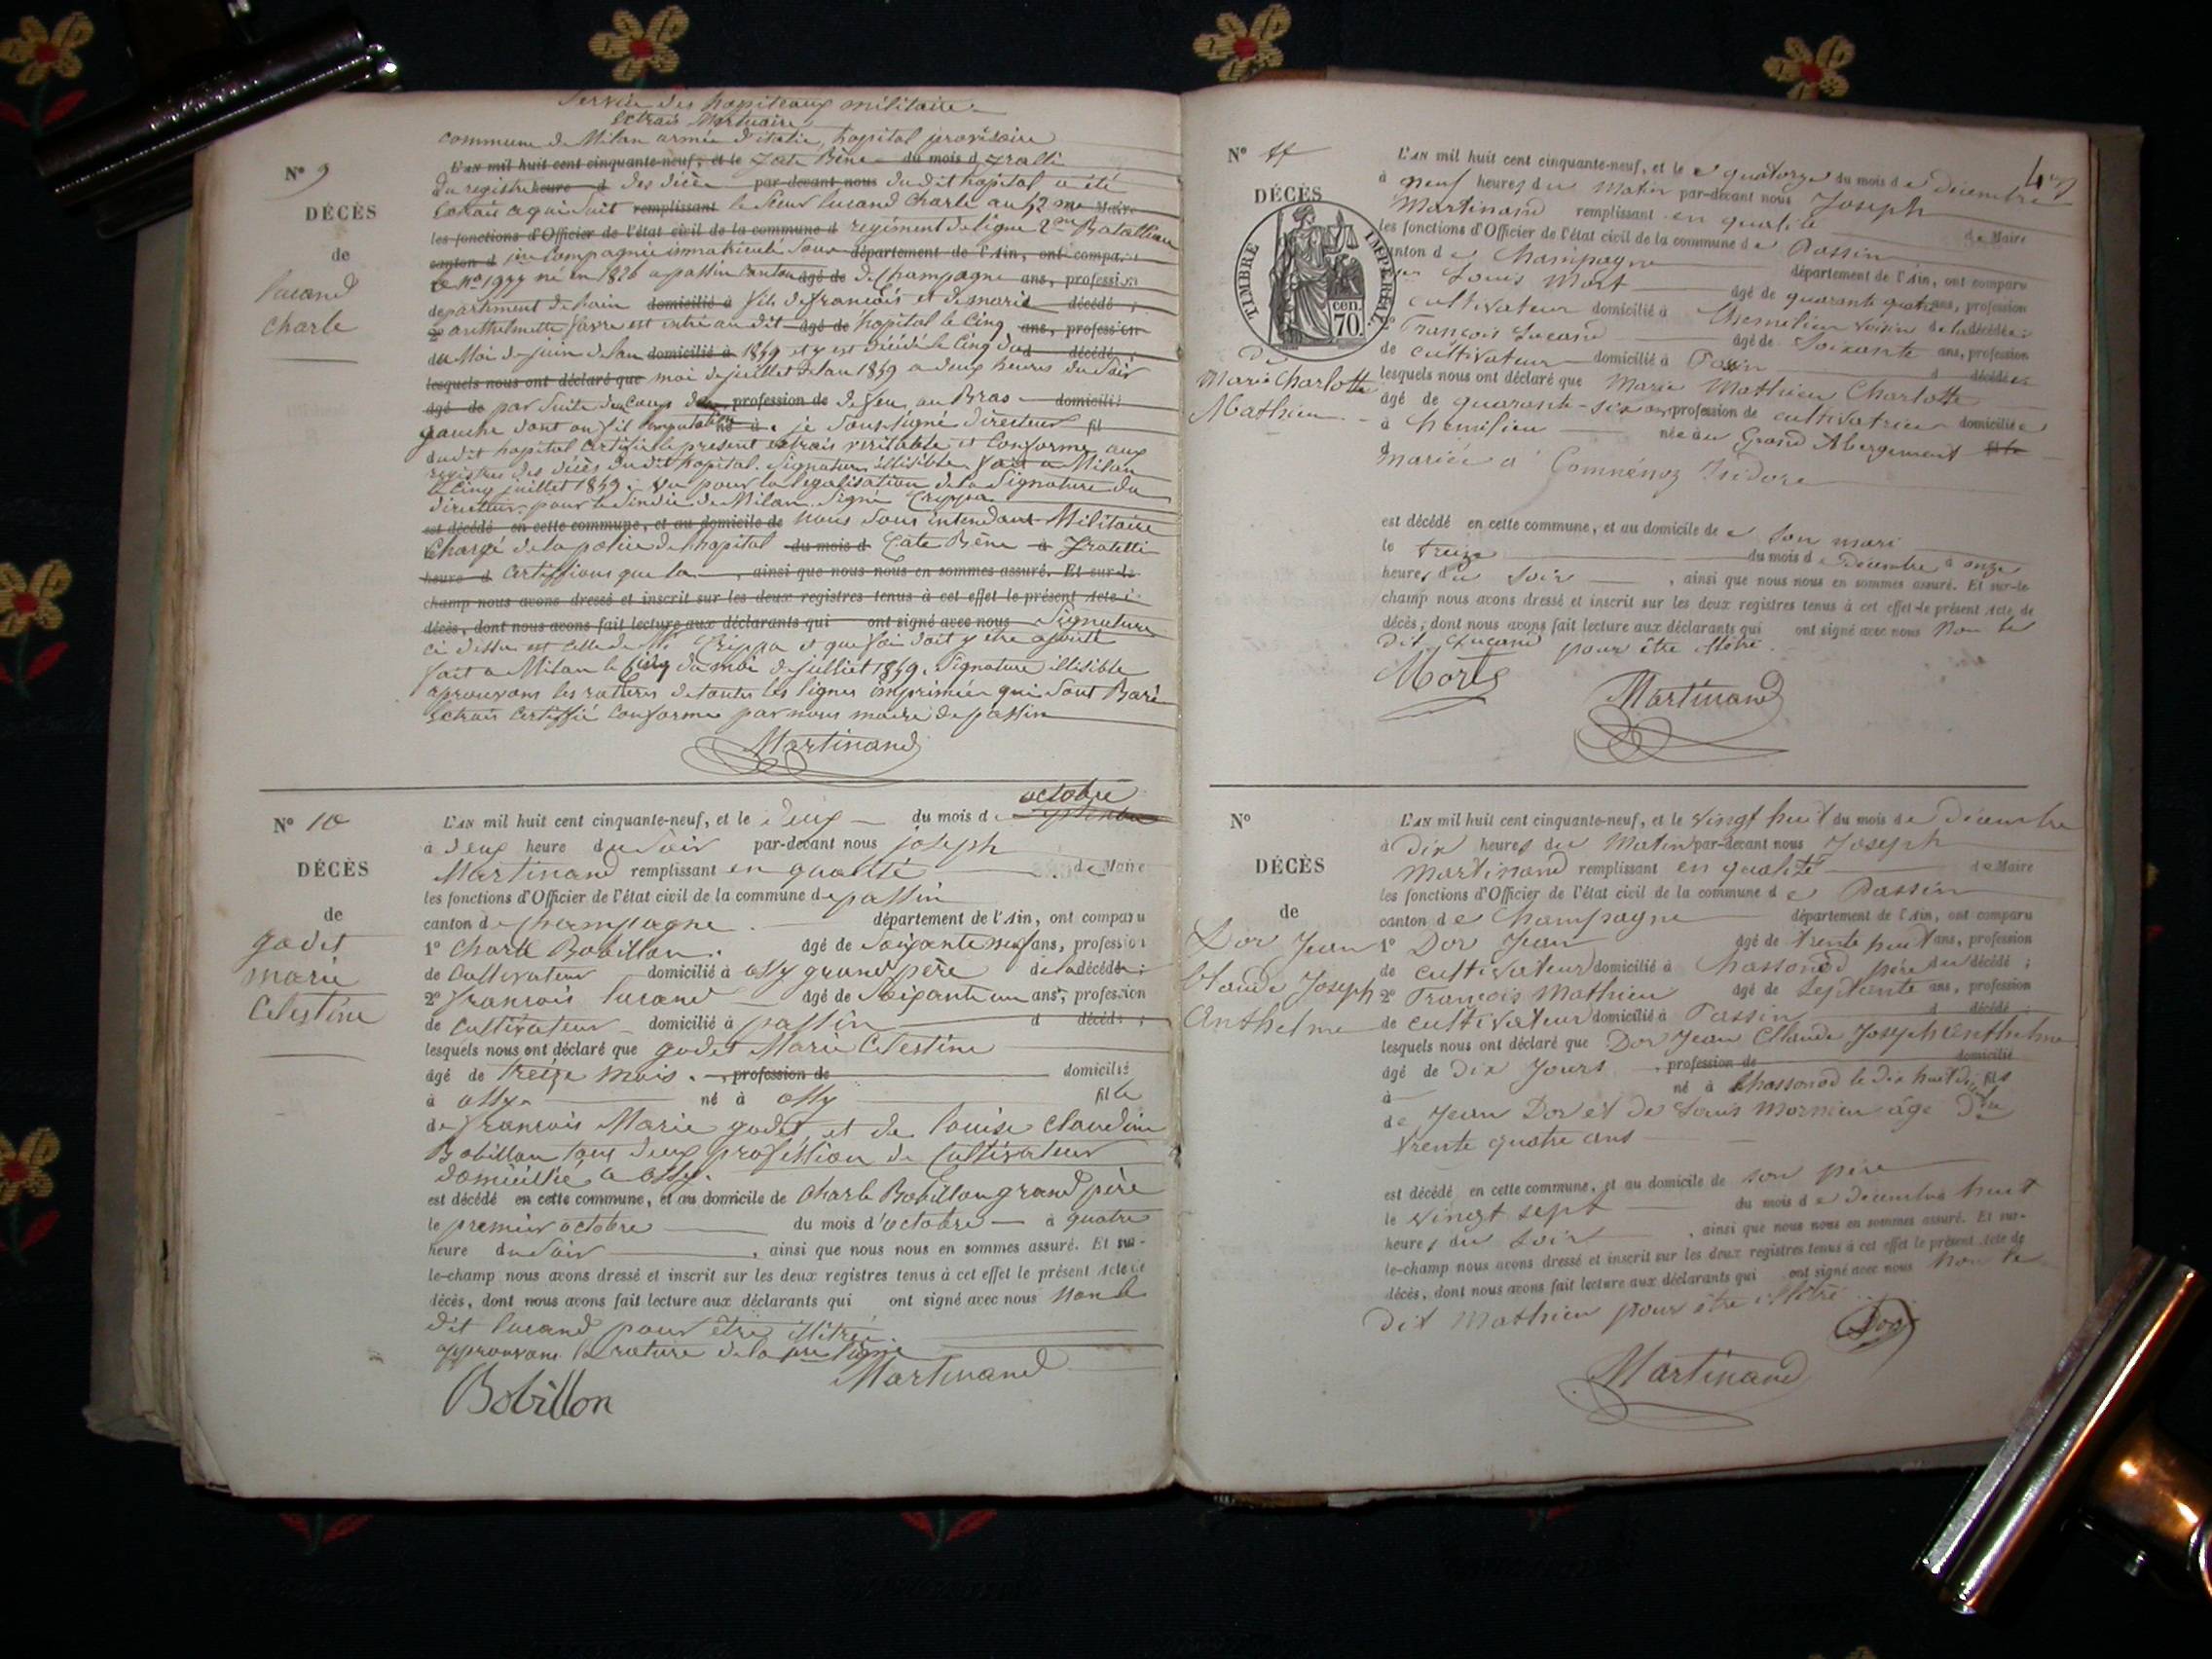 Service des hopiteaux militaire
extrais Mortuaire
commune de Milan armée d'italie, hopital provisoire
N° 9
L'AN mil huit cent cinquante-neuf, et le Fate Bene du mois d Fratelli
du registre heure d des décès par-devant nous du dit hopital a été
extrais ce qui suit remplissant le sieur lucand Charle au 52 me Maire
DÉCÈS
les fonctions d'Officier de l'état civil de la commune d regiment de ligne 2me Batallion
de
canton d 1re Compagnie immatriculé sous département de l'Ain, ont comparu
lucand
Charle
le N° 1977 né en 1826 a passin Canton âgé de de Champagne ans, profession
département de lain domicilié à fils de francois et de marie décédé ;
2° anthelmette favre est entré au dit âgé de hopital le Cinq ans, profession
du Moi de juin de lan domicilié à 1859 et y est décédé le Cinq du d décédé ;
lesquels nous ont déclaré que moi de juillet de lan 1859 a deux heures du Soir
âgé de par Suite du coup de profession de de feu au Bras domicilié
gauche dont on fil amputation né à je soussigné directeur fil
dudit hopital Certifie le present extrais veritable et Conforme aux
registres des décès dudit hopital. Signature illisible fait a Milan
le Cinq juillet 1859. Vu pour la legalisation de la Signature du
directeur pour le Sindic de Milan Signé Crippa
est décédé en cette commune, et au domicile de Nous Sous intendant Militaire
Chargé de la police de l'hopital du mois d Fate Bene à Fratelli
heure d Certiffions que la , ainsi que nous nous en sommes assuré. Et sur-le-
champ nous avons dressé et inscrit sur les deux registres tenus à cet effet le présent Acte de
décès, dont nous avons fait lecture aux déclarants qui ont signé avec nous Signature
ci dessus est celle de Mr Crippa et que foi doit y etre ajouté
fait a Milan le Cinq du moi de juilliet 1859. Signature illisible
aprouvons les ratures de toutes les lignes imprimées qui Sont Baré
Extrais Certiffié Conforme par nous maire de passin
Martinand
N° 10
L'AN mil huit cent cinquante-neuf, et le deux du mois d septembre octobre
à deux heure du Soir par-devant nous joseph
DÉCÈS
Martinand remplissant en qualité de Maire
les fonctions d'Officier de l'état civil de la commune de passin
de
canton de Champagne département de l'Ain, ont comparu
godet
marie
Celestine
1° Charle Bobillon âgé de Soixante neuf ans, profession
de Cultivateur domicilié à ossy grand père de la décédée ;
2° francois lucand âgé de Soixante un ans, profession
de Cultivateur domicilié à passin d décédé ;
lesquels nous ont déclaré que godet Marie Celestine
âgé de treize mois , profession de domicilié
à ossy né à ossy fille
de francois Marie godet et de louise Claudine
Bobillon tous deux profession de Cultivateur
domicilié a ossy.
est décédé en cette commune, et au domicile de Charle Bobillon grand père
le premier octobre du mois d'octobre à quatre
heure du Soir , ainsi que nous nous en sommes assuré. Et sur-
le-champ nous avons dressé et inscrit sur les deux registres tenus à cet effet le présent Acte de
décès, dont nous avons fait lecture aux déclarants qui ont signé avec nous Non le
dit lucand pour être illitré.
approuvons la rature de la 1re ligne
Bobillon Martinand
N° 11
L'AN mil huit cent cinquante-neuf, et le quatorze du mois de décembre
à neuf heures du Matin par-devant nous Joseph
DÉCÈS
TIMBRE IMPÉRIAL
70 cen.
Martinand remplissant en qualité de Maire
les fonctions d'Officier de l'état civil de la commune de Passin
canton de Champagne département de l'Ain, ont comparu
1° Louis Mort âgé de quarante quatre ans, profession
de cultivateur domicilié à Chemilieu voisin de la décédée ;
2° François Lucand âgé de Soixante ans, profession
de cultivateur domicilié à Passin d décédé
de
Marie Charlotte
Mathieu
lesquels nous ont déclaré que Marie Mathieu Charlotte
âgé de quarante-six ans, profession de cultivatrice domiciliée
à Chemilieu née au Grand Abergement fille
mariée a Comménoz Isidore
est décédé en cette commune, et au domicile de son mari
le treize du mois de Décembre à onze
heures du Soir , ainsi que nous nous en sommes assuré. Et sur-le-
champ nous avons dressé et inscrit sur les deux registres tenus à cet effet le présent Acte de
décès, dont nous avons fait lecture aux déclarants qui ont signé avec nous Non le
dit Lucand pour être illétré.
Mort Martinand
N°
L'AN mil huit cent cinquante-neuf, et le vingt huit du mois de décembre
à Dix heures du Matin par-devant nous Joseph
DÉCÈS
Martinand remplissant en qualité de Maire
les fonctions d'Officier de l'état civil de la commune de Passin
de
canton de Champagne département de l'Ain, ont comparu
Dor Jean
Claude Joseph
Anthelme
1° Dor Jean âgé de trente huit ans, profession
de cultivateur domicilié à Chassonod père du décédé ;
2° François Mathieu âgé de Septante ans, profession
de cultivateur domicilié à Passin d décédé
lesquels nous ont déclaré que Dor Jean Claude Joseph Anthelme
âgé de Dix Jours , profession de domicilié
à né à Chassonod le dix huit du fils
de Jean Dor et de Mornieu âge de
trente quatre ans
est décédé en cette commune, et au domicile de son père
le vingt sept du mois de Décembre huit
heures du Soir , ainsi que nous nous en sommes assuré. Et sur-
le-champ nous avons dressé et inscrit sur les deux registres tenus à cet effet le présent Acte de
décès, dont nous avons fait lecture aux déclarants qui ont signé avec nous Non le
Dit Mathieu pour être illétré
Dor
Martinand